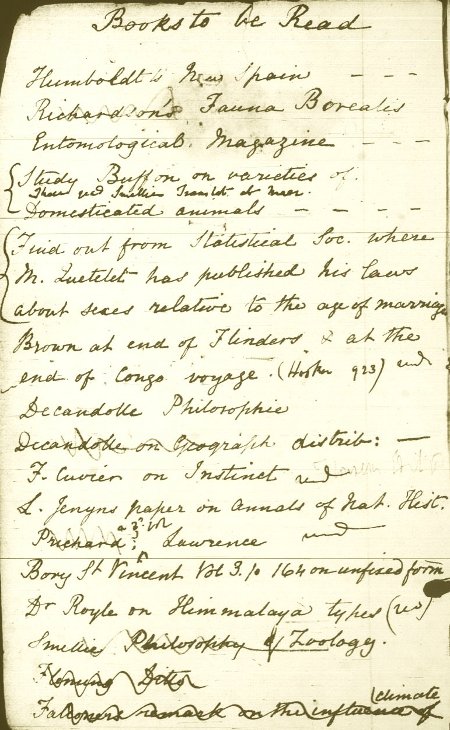 Books to be Read
Humboldt's New Spain — — —
Richardson's Fauna Borealis
Entomological Magazine — — —
Study Buffon on varieties of
Domesticated animals — — — —
Find out from Statistical Soc. where
M. Quetelet has published his laws
about sexes relative to the age of marriage
Brown at end of Flinders & at the
end of Congo voyage. (Hooker 923) read
Decandolle Philosophie
Decandolle on Geograph distrib: —
F. Cuvier on Instinct read
L. Jenyns paper on Annals of Nat. Hist.
Prichard; Lawrence read
Bory St Vincent Vol 3. p 164 on unfixed form
Dr Royle on Himmalaya types (read)
Smellie Philosophy of Zoology.
Fleming Ditto
climate
Falconers remark on the influence of